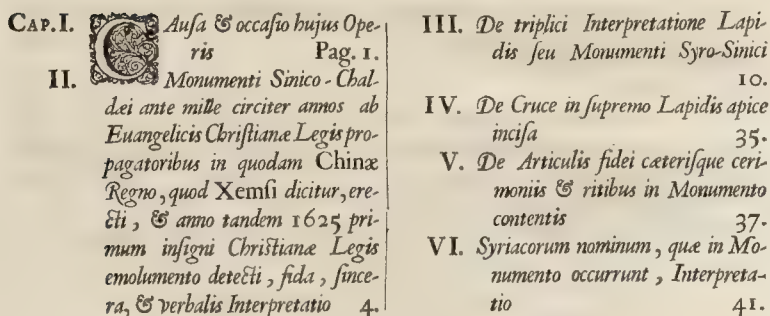 CAP. I. CAusa & occasio hujus Ope-
ris Pag. 1.
II. Monumenti Sinico-Chal-
dæi ante mille circiter annos ab
Euangelicis Christianæ Legis pro-
pagatoribus in quodam Chinæ
Regno, quod Xemsi dicitur, ere-
cti, & anno tandem 1625 pri-
mum insigni Christianæ Legis
emolumento detecti, fida, since-
ra, & verbalis Interpretatio 4.
III. De triplici Interpretatione Lapi-
dis seu Monumenti Syro-Sinici
10.
IV. De Cruce in supremo Lapidis apice
incisa 35.
V. De Articulis fidei cæterisque ceri-
moniis & ritibus in Monumento
contentis 37.
VI. Syriacorum nominum, quæ in Mo-
numento occurrunt, Interpreta-
tio 41.